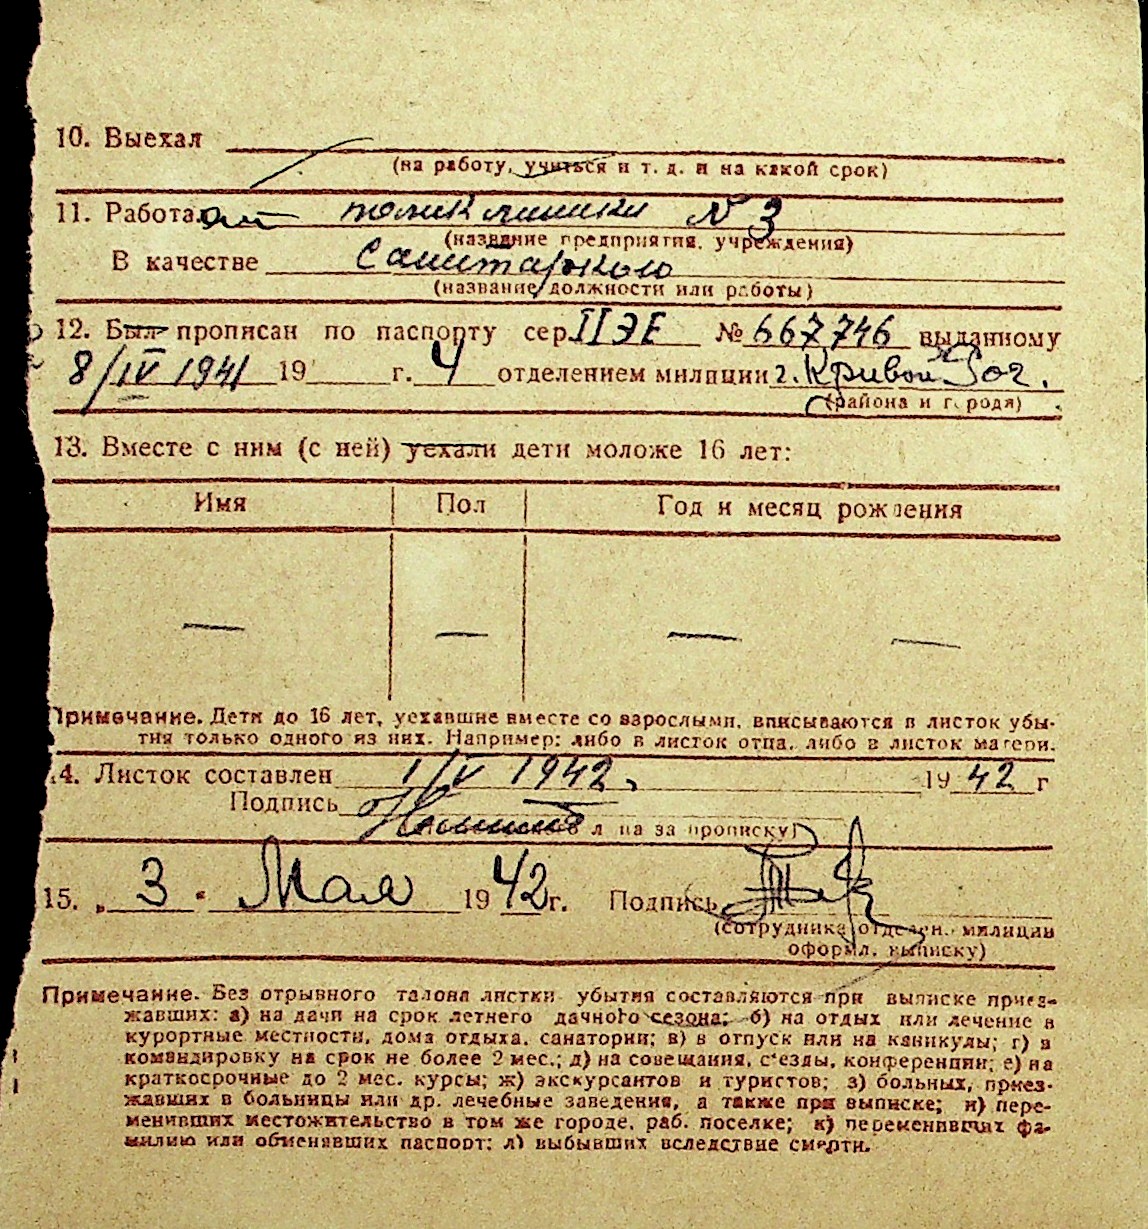 10. Выехал
(на работу, учиться и т. д. и на какой срок)
11. Работал поликлиники N 3
(название предприятия, учреждения)
В качестве Санитаркою
(название должности или работы)
12. Был прописан по паспорту сер. IIЭЕ № 667746 выданному
8/IV 1941 19 г. 4 отделением милиции г. Кривой Рог.
(района и города)
13. Вместе с ним (с ней) уехали дети моложе 16 лет:
Имя Пол Год и месяц рождения
— — — —
Примечание. Дети до 16 лет, уехавшие вместе со взрослыми, вписываются в листок убы-
тия только одного из них. Например: либо в листок отца, либо в листок матери.
14. Листок составлен 1/V 1942. 1942 г
Подпись
л на за прописку)
15. „ 3 " Мая 1942г. Подпись
(сотрудника отделен. милиции
оформл. выписку)
Примечание. Без отрывного талона листки убытия составляются при выписке приез-
жавших: а) на дачи на срок летнего дачного сезона; б) на отдых или лечение в
курортные местности, дома отдыха, санатории; в) в отпуск или на каникулы; г) в
командировку на срок не более 2 мес.; д) на совещания, с'езды, конференции; е) на
краткосрочные до 2 мес. курсы; ж) экскурсантов и туристов; з) больных, приез-
жавших в больницы или др. лечебные заведения, а также при выписке; и) пере-
менивших местожительство в том же городе, раб. поселке; к) переменивших фа-
милию или обменявших паспорт; л) выбывших вследствие смерти.